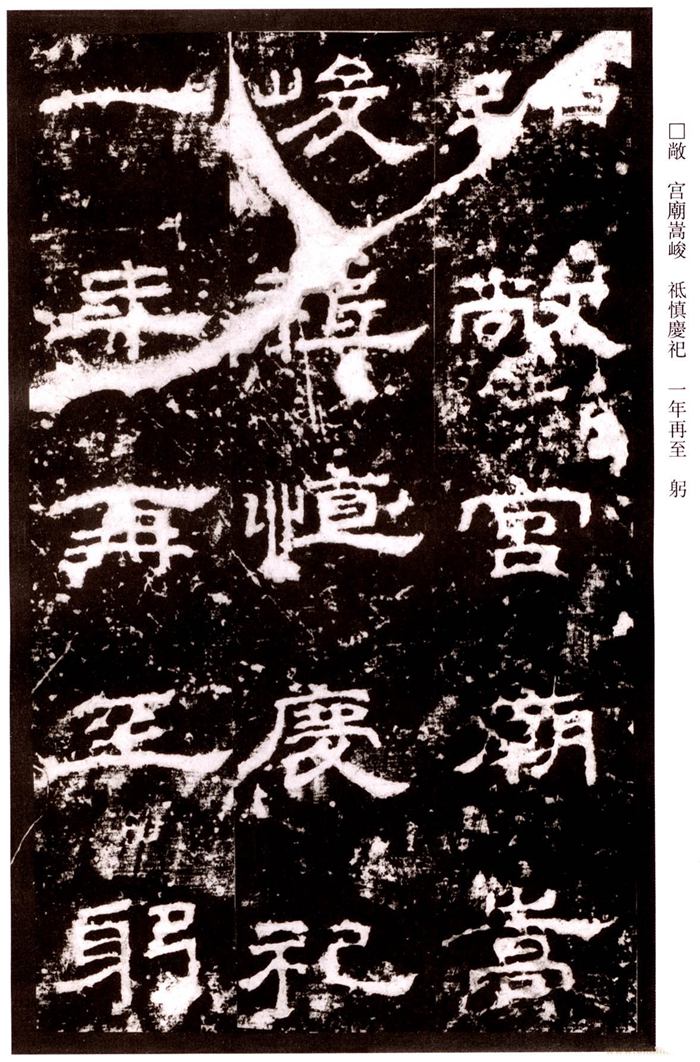 □敞　宫廟嵩峻　祗慎慶祀　一年再至　躬
敞宮廟嵩
峻祗慎慶祀
一年再至躬